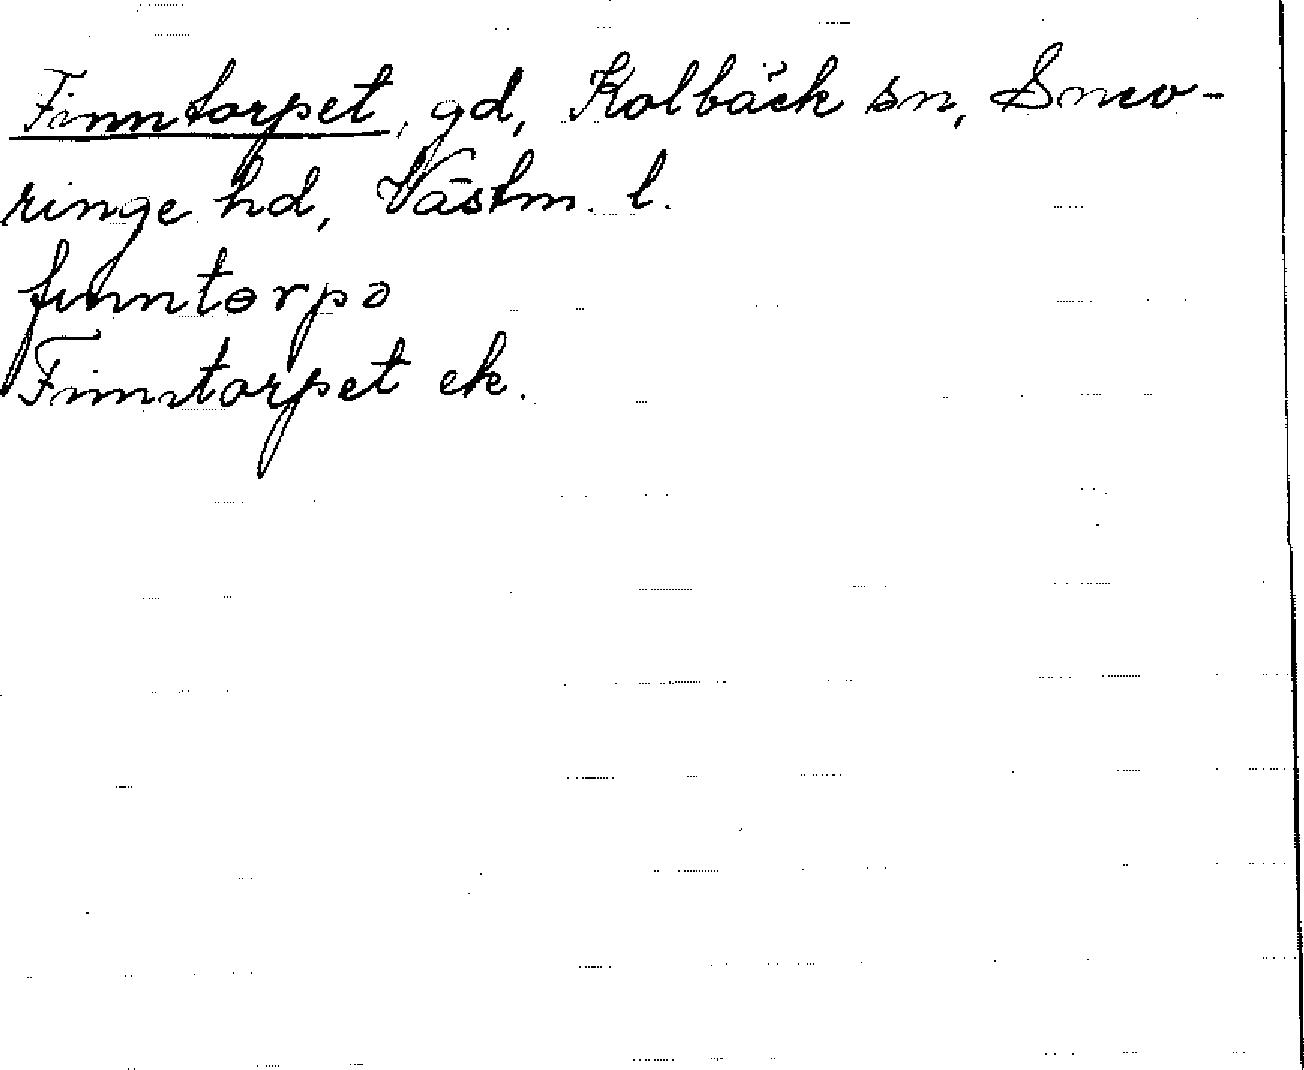 Finntorpet, gd, Kolbäck sn, Snev-
ringe hd, Västm. l.
finntorpə
Finntorpet ek.